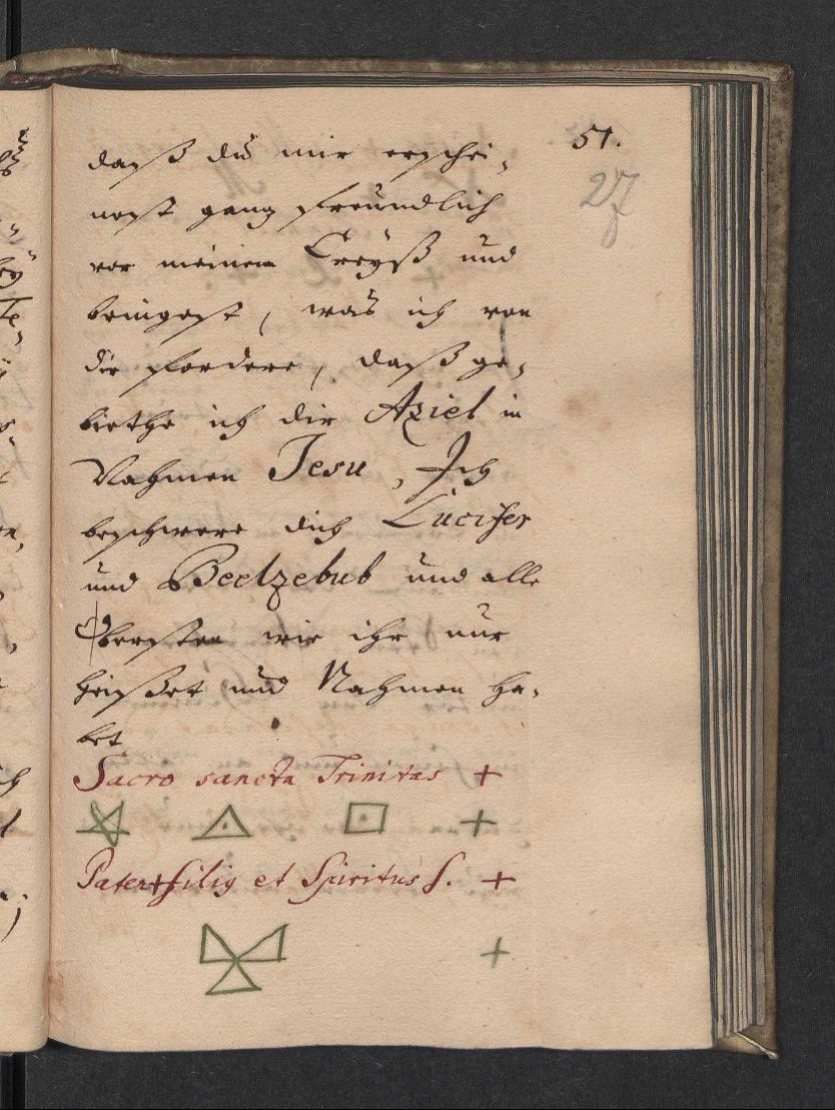 51.
27
daß du mir erschei„
nest gantz freundlich
vor meinem Creyß und
bringest, was ich von
dir fordere, daß ge„
biethe ich dir Aziel in
Nahmen Jesu, Ich
beschwere dich Lucifer
und Beelzebub und alle
Obersten wie ihr nur
heißet und Nahmen ha„
bet
Sacro sancta Trinitas +
+
Pater + filiy et Spiritus S. +
+